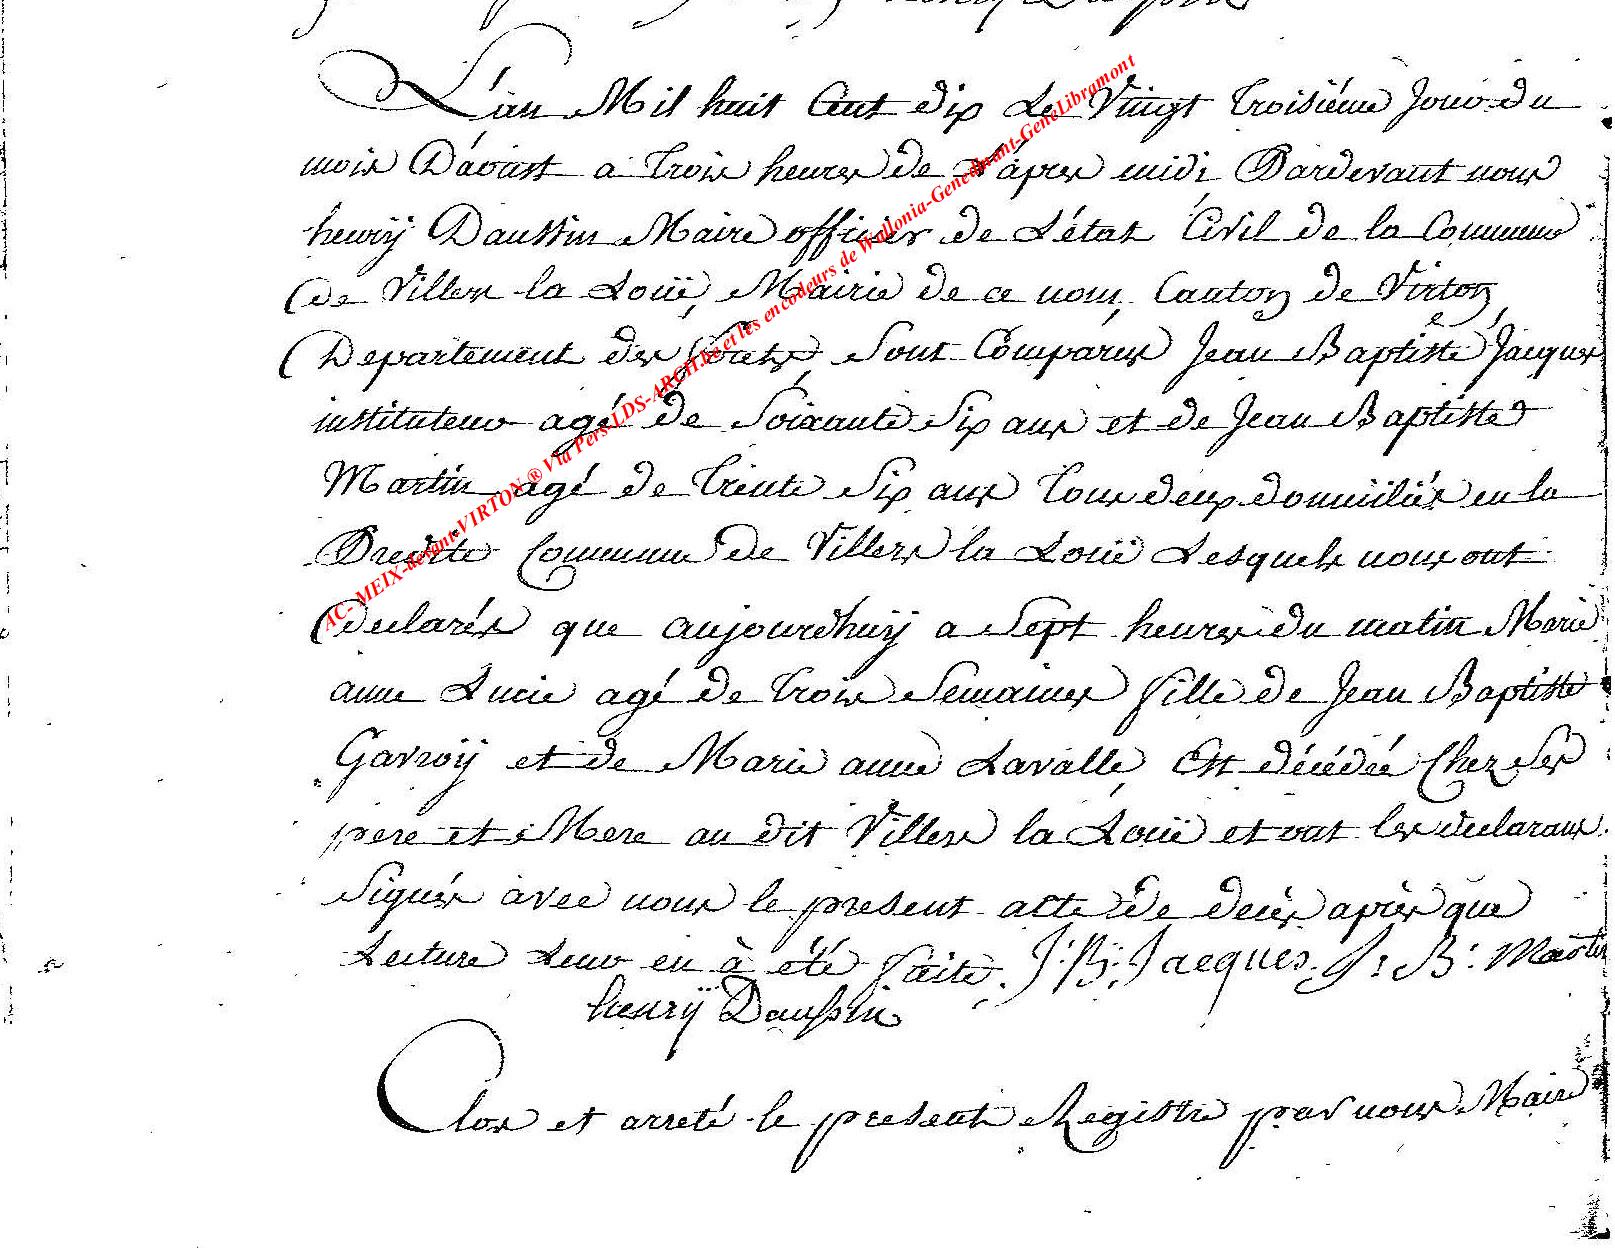 L'an Mil huit Cent dix Le Vingt Troisiéme Jour du
mois D'aoust a Trois heures de L'apres midi Pardevant nous
henrÿ Daussin Maire officier de L'état Civil de la Commune
de Villers la Loüe, Mairie de ce nom, Canton de Virton,
Departement des forets, Sont Comparus Jean Baptiste Jacques
instituteur agé de Soixante Six ans et de Jean Baptiste
Martin agé de Trente Six ans Tous deux domiciliés en la
Predite Commune de Villers la Loüe Lesquels nous ont
declarés que aujourdhuÿ a Sept heures du matin Marie
anne Lucie agé de Trois Semaines fille de Jean Baptiste
Gavroÿ et de Marie anne Lavalle, Est décédée Chez Ses
pere et Mere au dit Villers la Loüe et ont les declarans
Signés avec nous le present acte de decès après que
Lecture Leur en à été faite. J: B: Jacques. J: B: Martin
henrÿ Daussin
Clos et arreté le present Registre par nous Maire
AC- MEIX-devant-VIRTON ® Via Pers-LDS-ARCH.be et les encodeurs de Wallonia-Genedinant-GeneLibramont